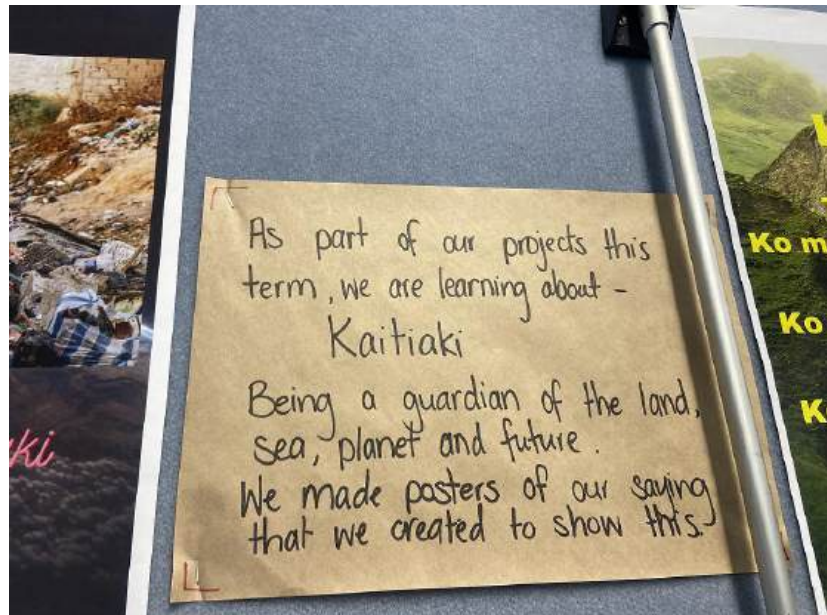 As part of our projects this
term, we are learning about -
Kaitiaki
Being a guardian of the land,
sea, planet and future.
We made posters of our saying
that we created to show this.
Ko
Ko